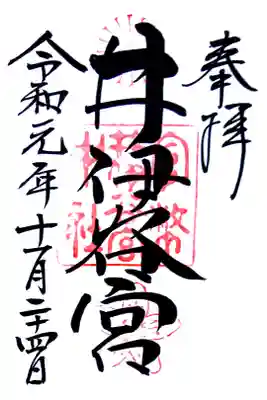 奉拝
井伊谷宮
令和元年十一月二十四日